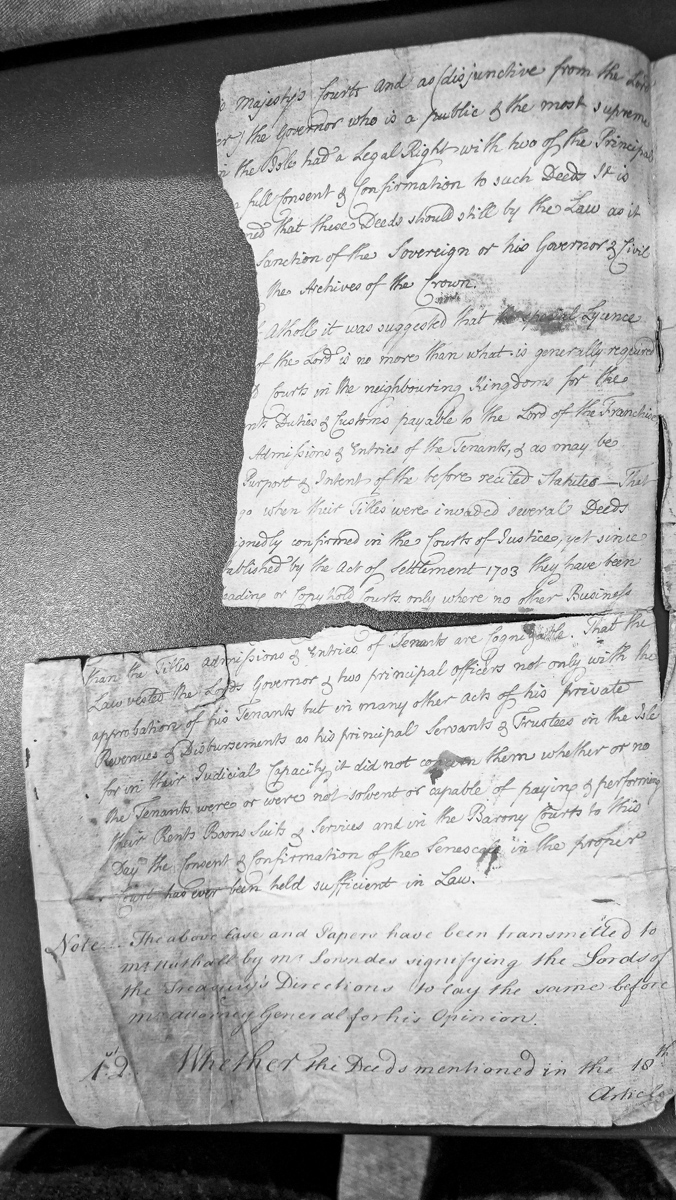 Majesty's Courts and as (disjunctive from the Lord
er) the Governor who is a public & the most supreme
in the Isle had a Legal Right with two of the Principal
a full Consent & Confirmation to such Deeds It is
ned that these Deeds should still by the Law as it
Sanction of the Sovereign or his Governor & Civil
the Archives of the Crown.
Atholl it was suggested that special Lycence
of the Lord is no more than what is generally required
Courts in the neighbouring Kingdoms for the
nts Duties & Customs payable to the Lord of the Franchise
Admissions & Entries of the Tenants, & as may be
Purport & Intent of the before recited Statutes — That
go when their Titles were invaded several Deeds
ignedly confirmed in the Courts of Justice, yet since
ablished by the Act of Settlement 1703 they have been
eading or Copyhold Courts only where no other Business
than the Titles admissions & Entries of Tenants are Cognizable. That the
Law vested the Lords Governor & two principal officers not only with the
approbation of his Tenants but in many other Acts of his private
Revenues & Disbursements as his principal Servants & Trustees in the Isle
for in their Judicial Capacity it did not concern them whether or no
the Tenants were or were not solvent or capable of paying & performing
their Rents Boons Suits & Services and in the Barony Courts to this
Day the Consent & Confirmation of the Senescall in the proper
Court has ever been held sufficient in Law.
Note — The above Case and Papers have been transmitted to
Mr. Nuthall by Mr. Lowndes signifying the Lords of
the Treasury's Directions to lay the same before
Mr. Attorney General for his Opinion.
1st. Q. Whether the Deeds mentioned in the 18th
Article